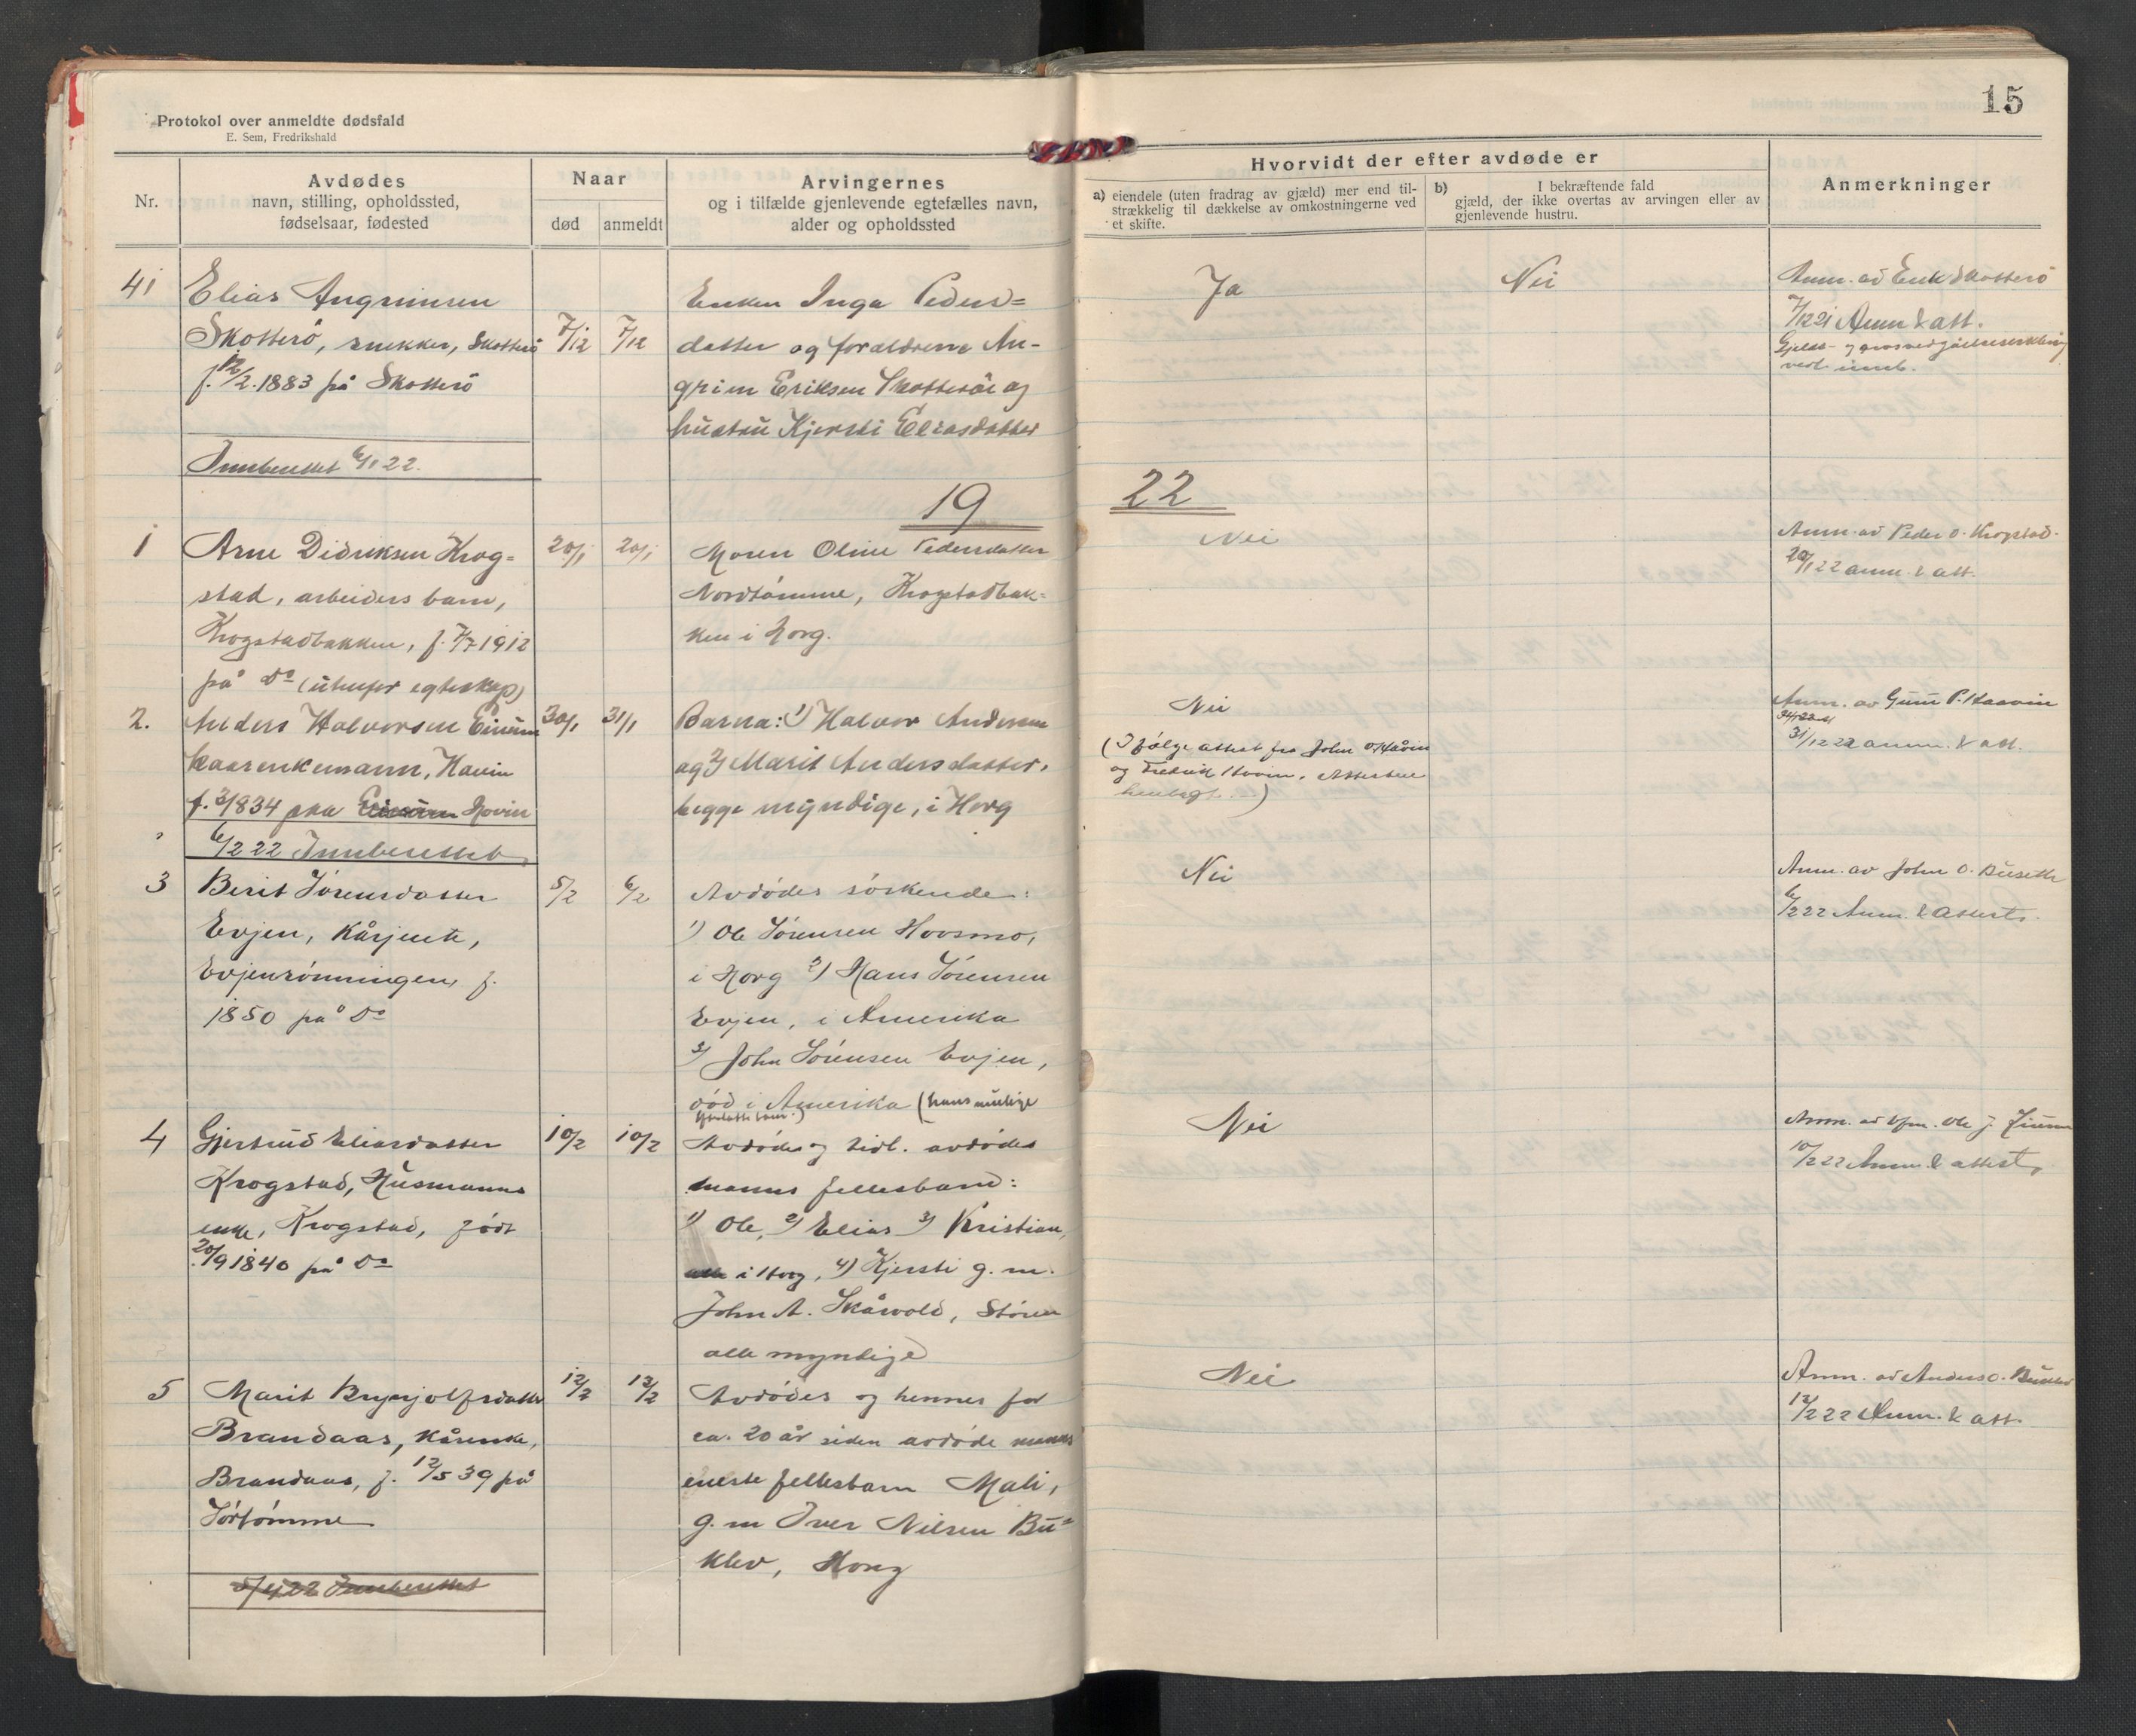 15
Protokol over anmeldte dødsfald
E. Sem, Fredrikshald
Nr.
Avdødes
navn, stilling, opholdssted,
fødselsaar, fødested
Naar
død
anmeldt
Arvingernes
og i tilfælde gjenlevende egtefælles navn,
alder og opholdssted
Hvorvidt der efter avdøde er
a) eiendele (uten fradrag av gjæld) mer end til-
strækkelig til dækkelse av omkostningerne ved
et skifte.
b) I bekræftende fald
gjæld, der ikke overtas av arvingen eller av
gjenlevende hustru.
Anmerkninger
41
Elias Angrimsen
Skotterö, snekker, Skotterö
f. 12/2. 1883 på Skotterö
7/12
7/12
Enken Inga Peders=
datter og forældrene An-
grim Eriksen Skotteröe og
hustru Kjersti Eliasdatter
Ja
Nei
Anm. av Erik Skotterö
7/12 21 Anm & att.
ved innb.
Innberettet 6/1 22.
19
22
1
Arne Didriksen Krog=
stad, arbeiders barn,
Krogstadbakken, f. 7/7 1912
på do (utenfor egteskap)
20/1
20/1
Moren Oline Pedersdatter
Nordtömme, Krogstadbak-
ken i Horg.
Nei
Anm. av Peder O. Krogstad.
20/1 22 anm. & att.
2.
Anders Halvorsen Einum
kaarenkemann, Hovin
f. 3/1834 paa Hovin
30/1
31/1
Barna: 1) Halvor Andersen
og 2) Marit Andersdatter,
begge myndige, i Horg
Nei
(Ifölge attest fra John O. Håvin
og Fredrik Hovin. Attesten
henlagt.)
Anm. av P. Haavin
31/12 22 anm. & att.
6/2 22 Innberettet
3
Berit Sörensdatter
Evjen, Kårjente,
Evjenrönningen, f.
1850 på do
5/2
6/2
Avdödes söskende:
1) Ole Sörensen Hovsmo,
i Horg 2) Hans Sörensen
Evjen, i Amerika
3) John Sörensen Evjen,
död i Amerika (hans mulige
Nei
Anm. av John O. Buseth
6/2 22 Anm. & attest.
4
Gjertrud Eliasdatter
Krogstad, Husmanns
enke, Krogstad, født
20/9 1840 på do
10/2
10/2
Avdödes og tidl. avdödes
manns fellesbarn:
1) Ole, 2) Elias 3) Kristian,
alle i Horg, 4) Kjersti g. m.
John A. Skårvold, Stören
alle myndige
Nei
Anm. av Ole J.
10/2 22 Anm. & attest.
5
Marit Brynjolfsdatter
Brandaas, Kårenke,
Brandaas, f. 12/5 39 på
Sörtömme
12/2
12/2
Avdödes og hennes for
ca. 20 år siden avdöde manns
eneste fellesbarn Mali,
g. m Iver Nilsen Bu=
klev, Horg
Nei
Anm. av Anders O.
12/2 22 Anm. & att.
5/4 22 Innberettet